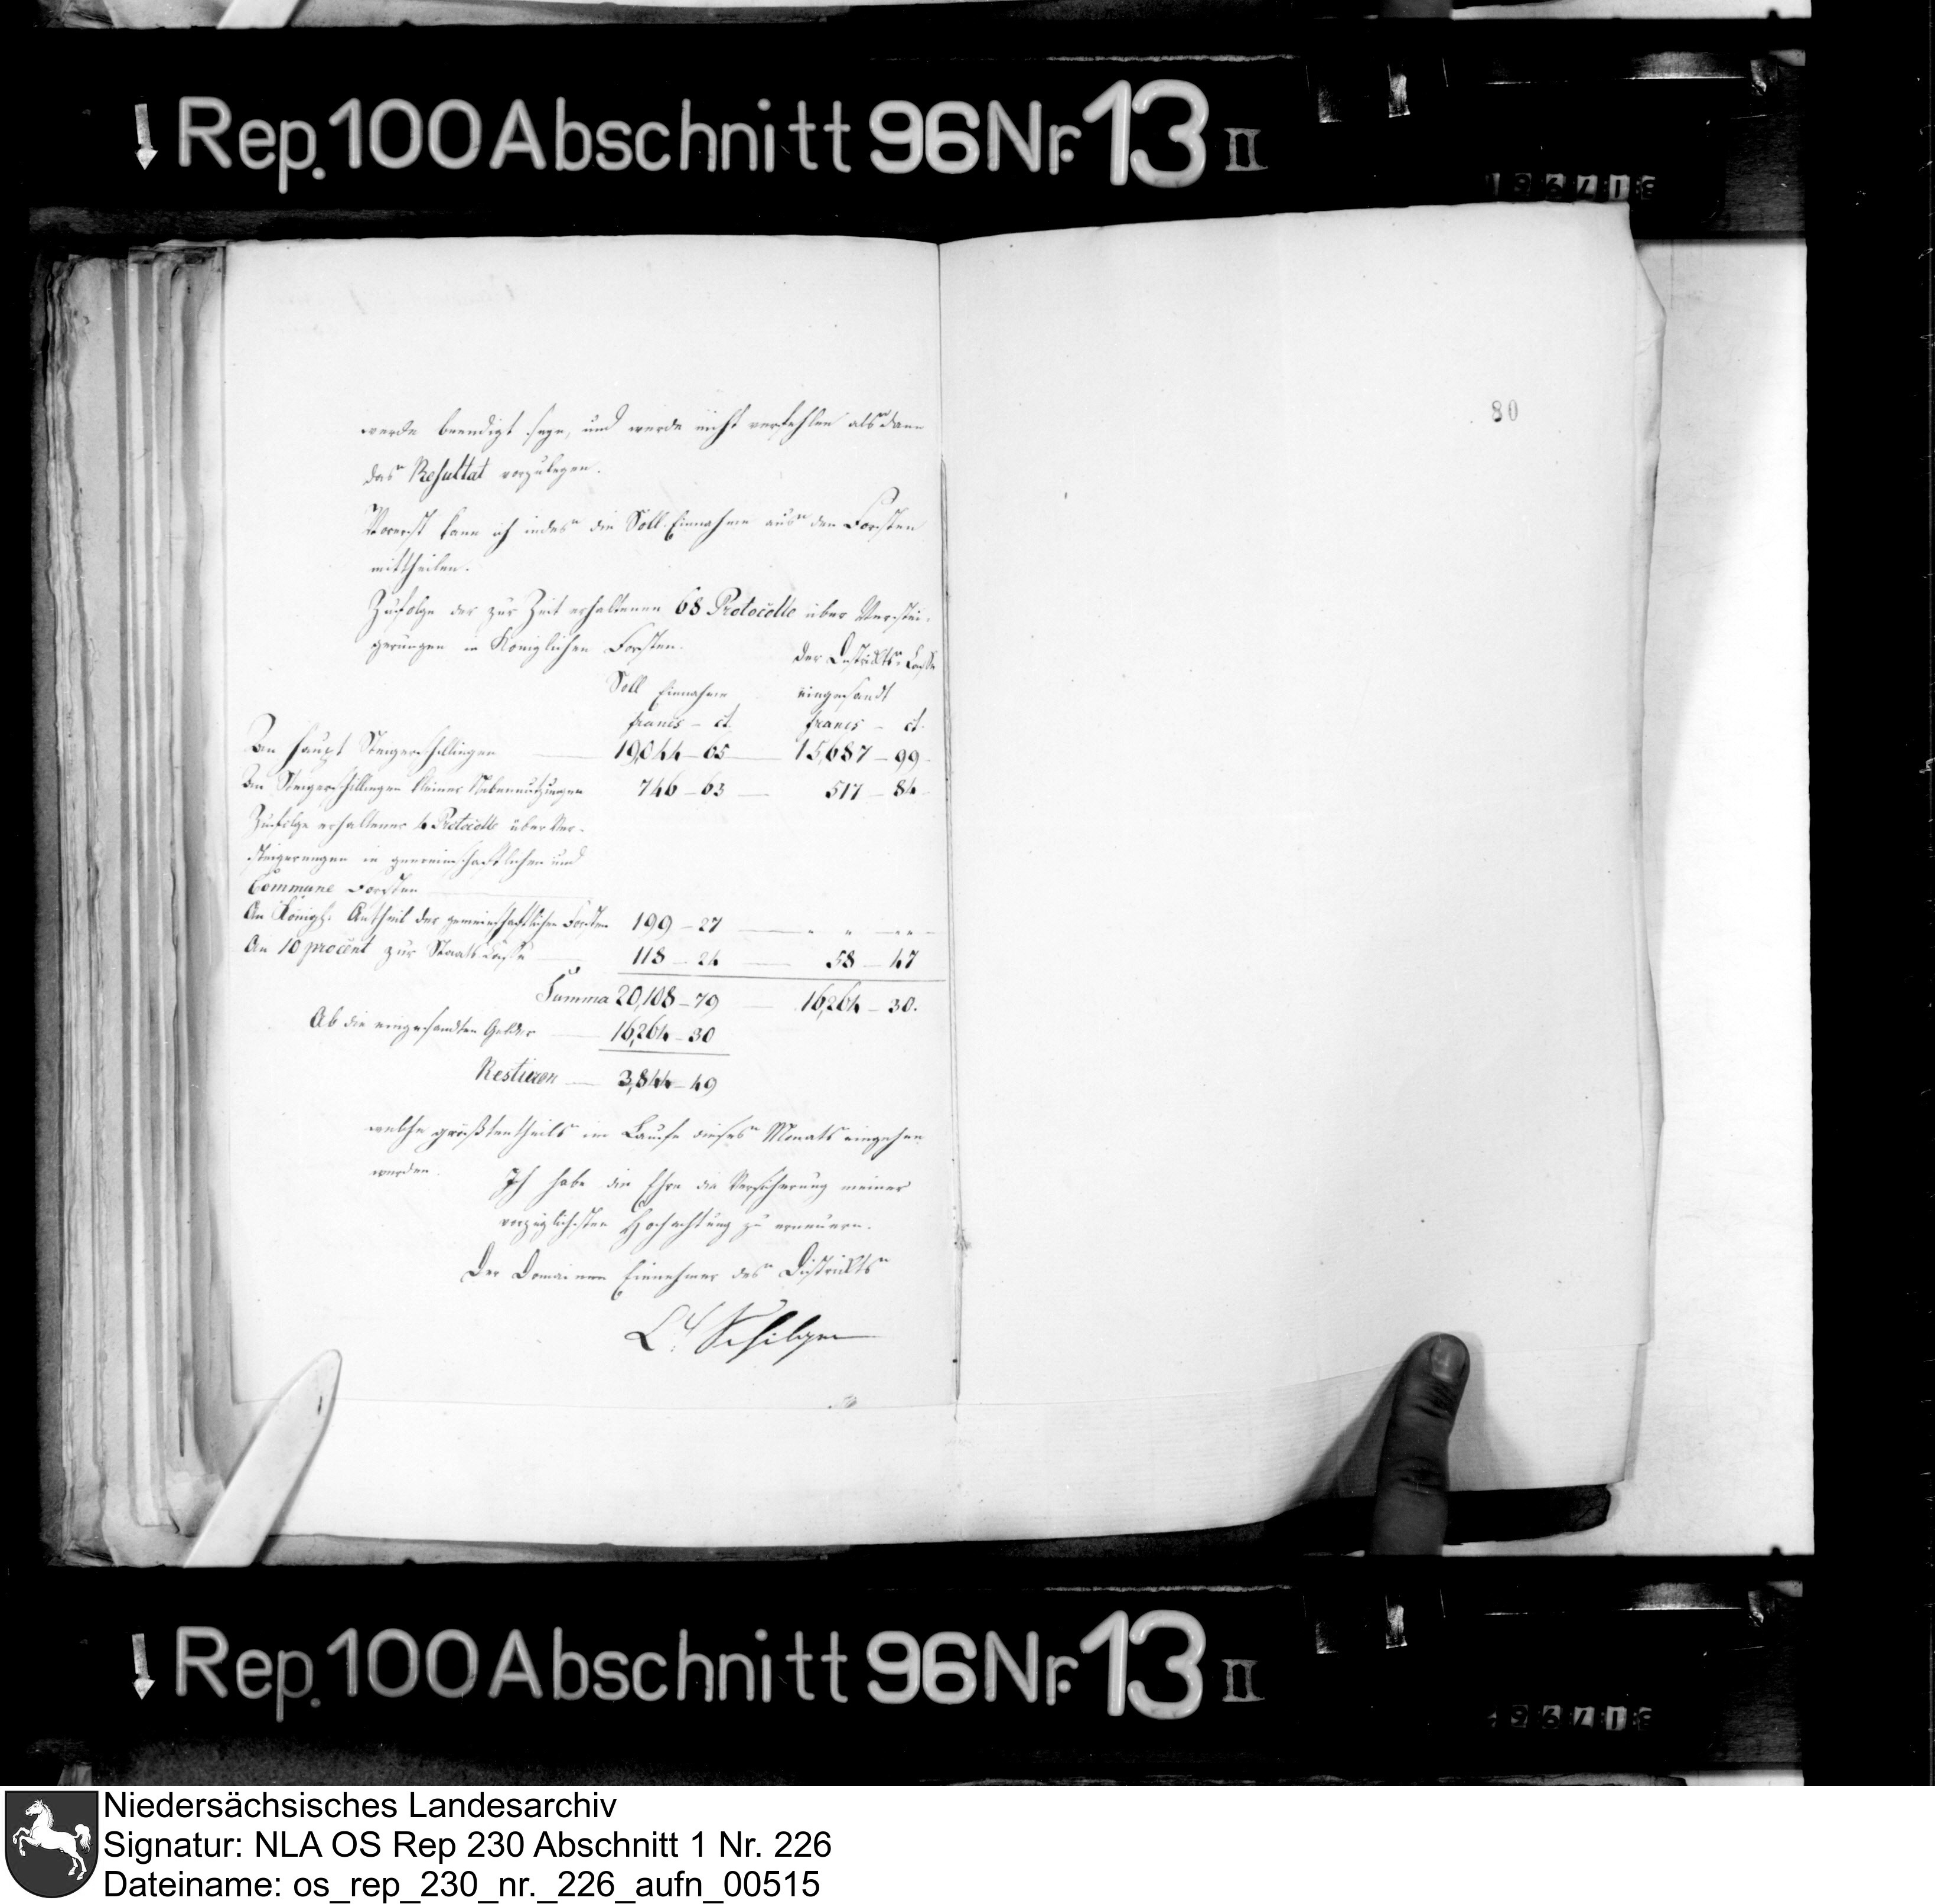 Rep. 100 Abschnitt 96 Nr. 13 II
werde beendigt seyn, und werde nicht verfehlen alsdann
das Resultat vorzulegen.
Vorerst kann ich indes die Soll-Einnahme aus den Forsten
mittheilen.
Zufolge der zur Zeit erhaltenen 68 Protocolle über Verstei-
gerungen in Königlichen Forsten.
der Distrikts-Casse
Soll Einnahme eingesandt
francs – ct. francs – ct.
An Haupt Steigerschillingen 19,044 – 65 15,687 – 99
An Steigerschillingen kleiner Nebennutzungen 746 – 63 517 – 84
Zufolge erhaltener 4 Protocolle über Ver-
steigerungen in gemeinschaftlichen und
Commune Forsten
An Königl. Antheil der gemeinschaftlichen Forsten 199 – 27 " " – " "
An 10 procent zur Staats Casse 118 – 24 58 – 47
Summa 20,108 – 79 16,264 – 30.
Ab die eingesandten Gelder 16,264 – 30
Restieren 3,844 – 49
welche größtentheils im Laufe dieses Monats eingehen
werden.
Ich habe die Ehre die Versicherung meiner
vorzüglichsten Hochachtung zu erneuern.
Der Domainen Einnehmer des Distrikts
Schilgen
80
Rep. 100 Abschnitt 96 Nr. 13 II
Niedersächsisches Landesarchiv
Signatur: NLA OS Rep 230 Abschnitt 1 Nr. 226
Dateiname: os_rep_230_nr._226_aufn_00515